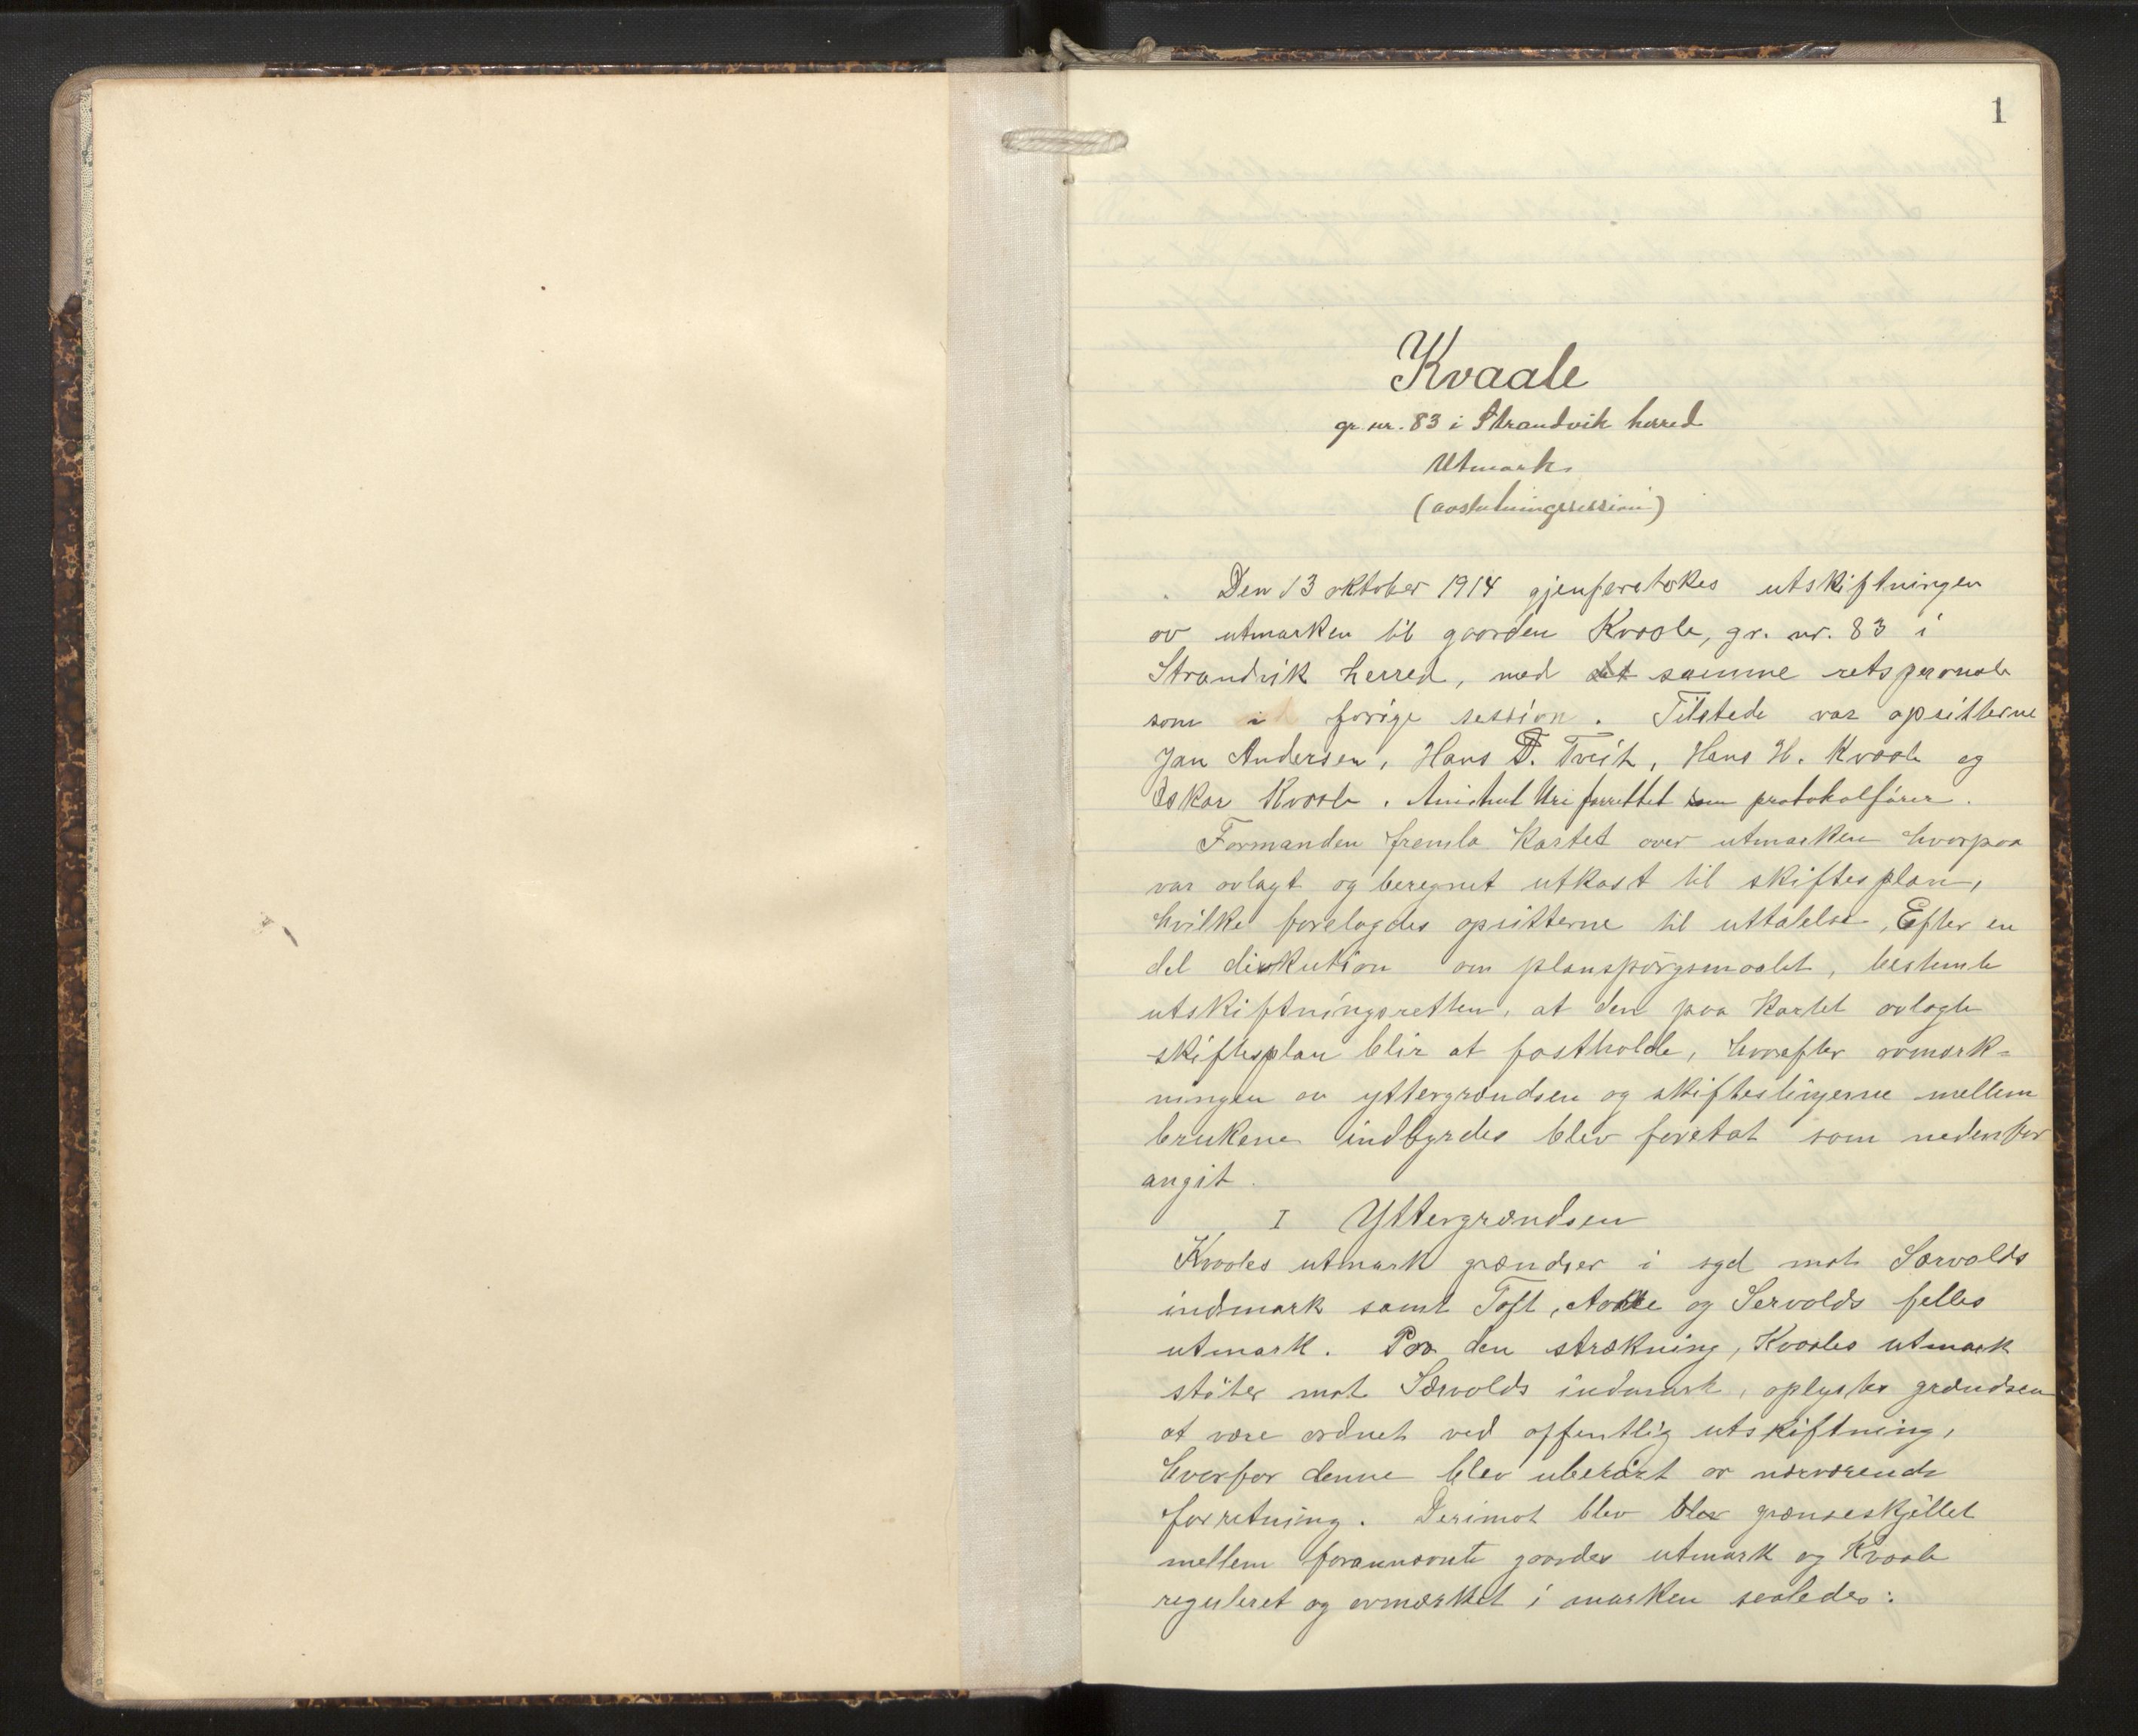 1
Kvaale
gr. nr. 83 i Strandvik herred
Utmark.
(avslutningssession)
Den 13 oktober 1914 gjenforetokes utskiftningen
av utmarken til gaarden Kvaale, gr. nr. 83 i
Strandvik herred, med samme retspersonale
som i forige session. Tilstede var opsitterne
Jan Andersen, Hans T. Tveit, Hans H. Kvaale og
Oskar Kvaale. Uri forrettet som protokolfører.
Formanden fremla kartet over utmarken hvorpaa
var avlagt og beregnet utkast til skiftesplan,
hvilke forelagdes opsitterne til uttalelse. Efter en
del diskution om planspørgsmaalet, bestemte
utskiftningsretten, at den paa kartet avlagte
skiftesplan blir at fastholde, hvorefter avmerk-
ningen av yttergrændsen og skifteslinjerne mellem
brukene indbyrdes blev foretat som nedenfor
angit.
I Yttergrændsen
Kvaales utmark grændser i syd mot Særvolds
indmark samt Toft, og Servolds felles
utmark. Paa den strækning, Kvaales utmark
støter mot Særvolds indmark, oplystes grændsen
at være ordnet ved offentlig utskiftning,
hvorfor denne blev uberørt av nærværende
forretning. Derimot blev blev grænseskjellet
mellem forannævnte gaardes utmark og Kvaale
reguleret og avmærket i marken saaledes: